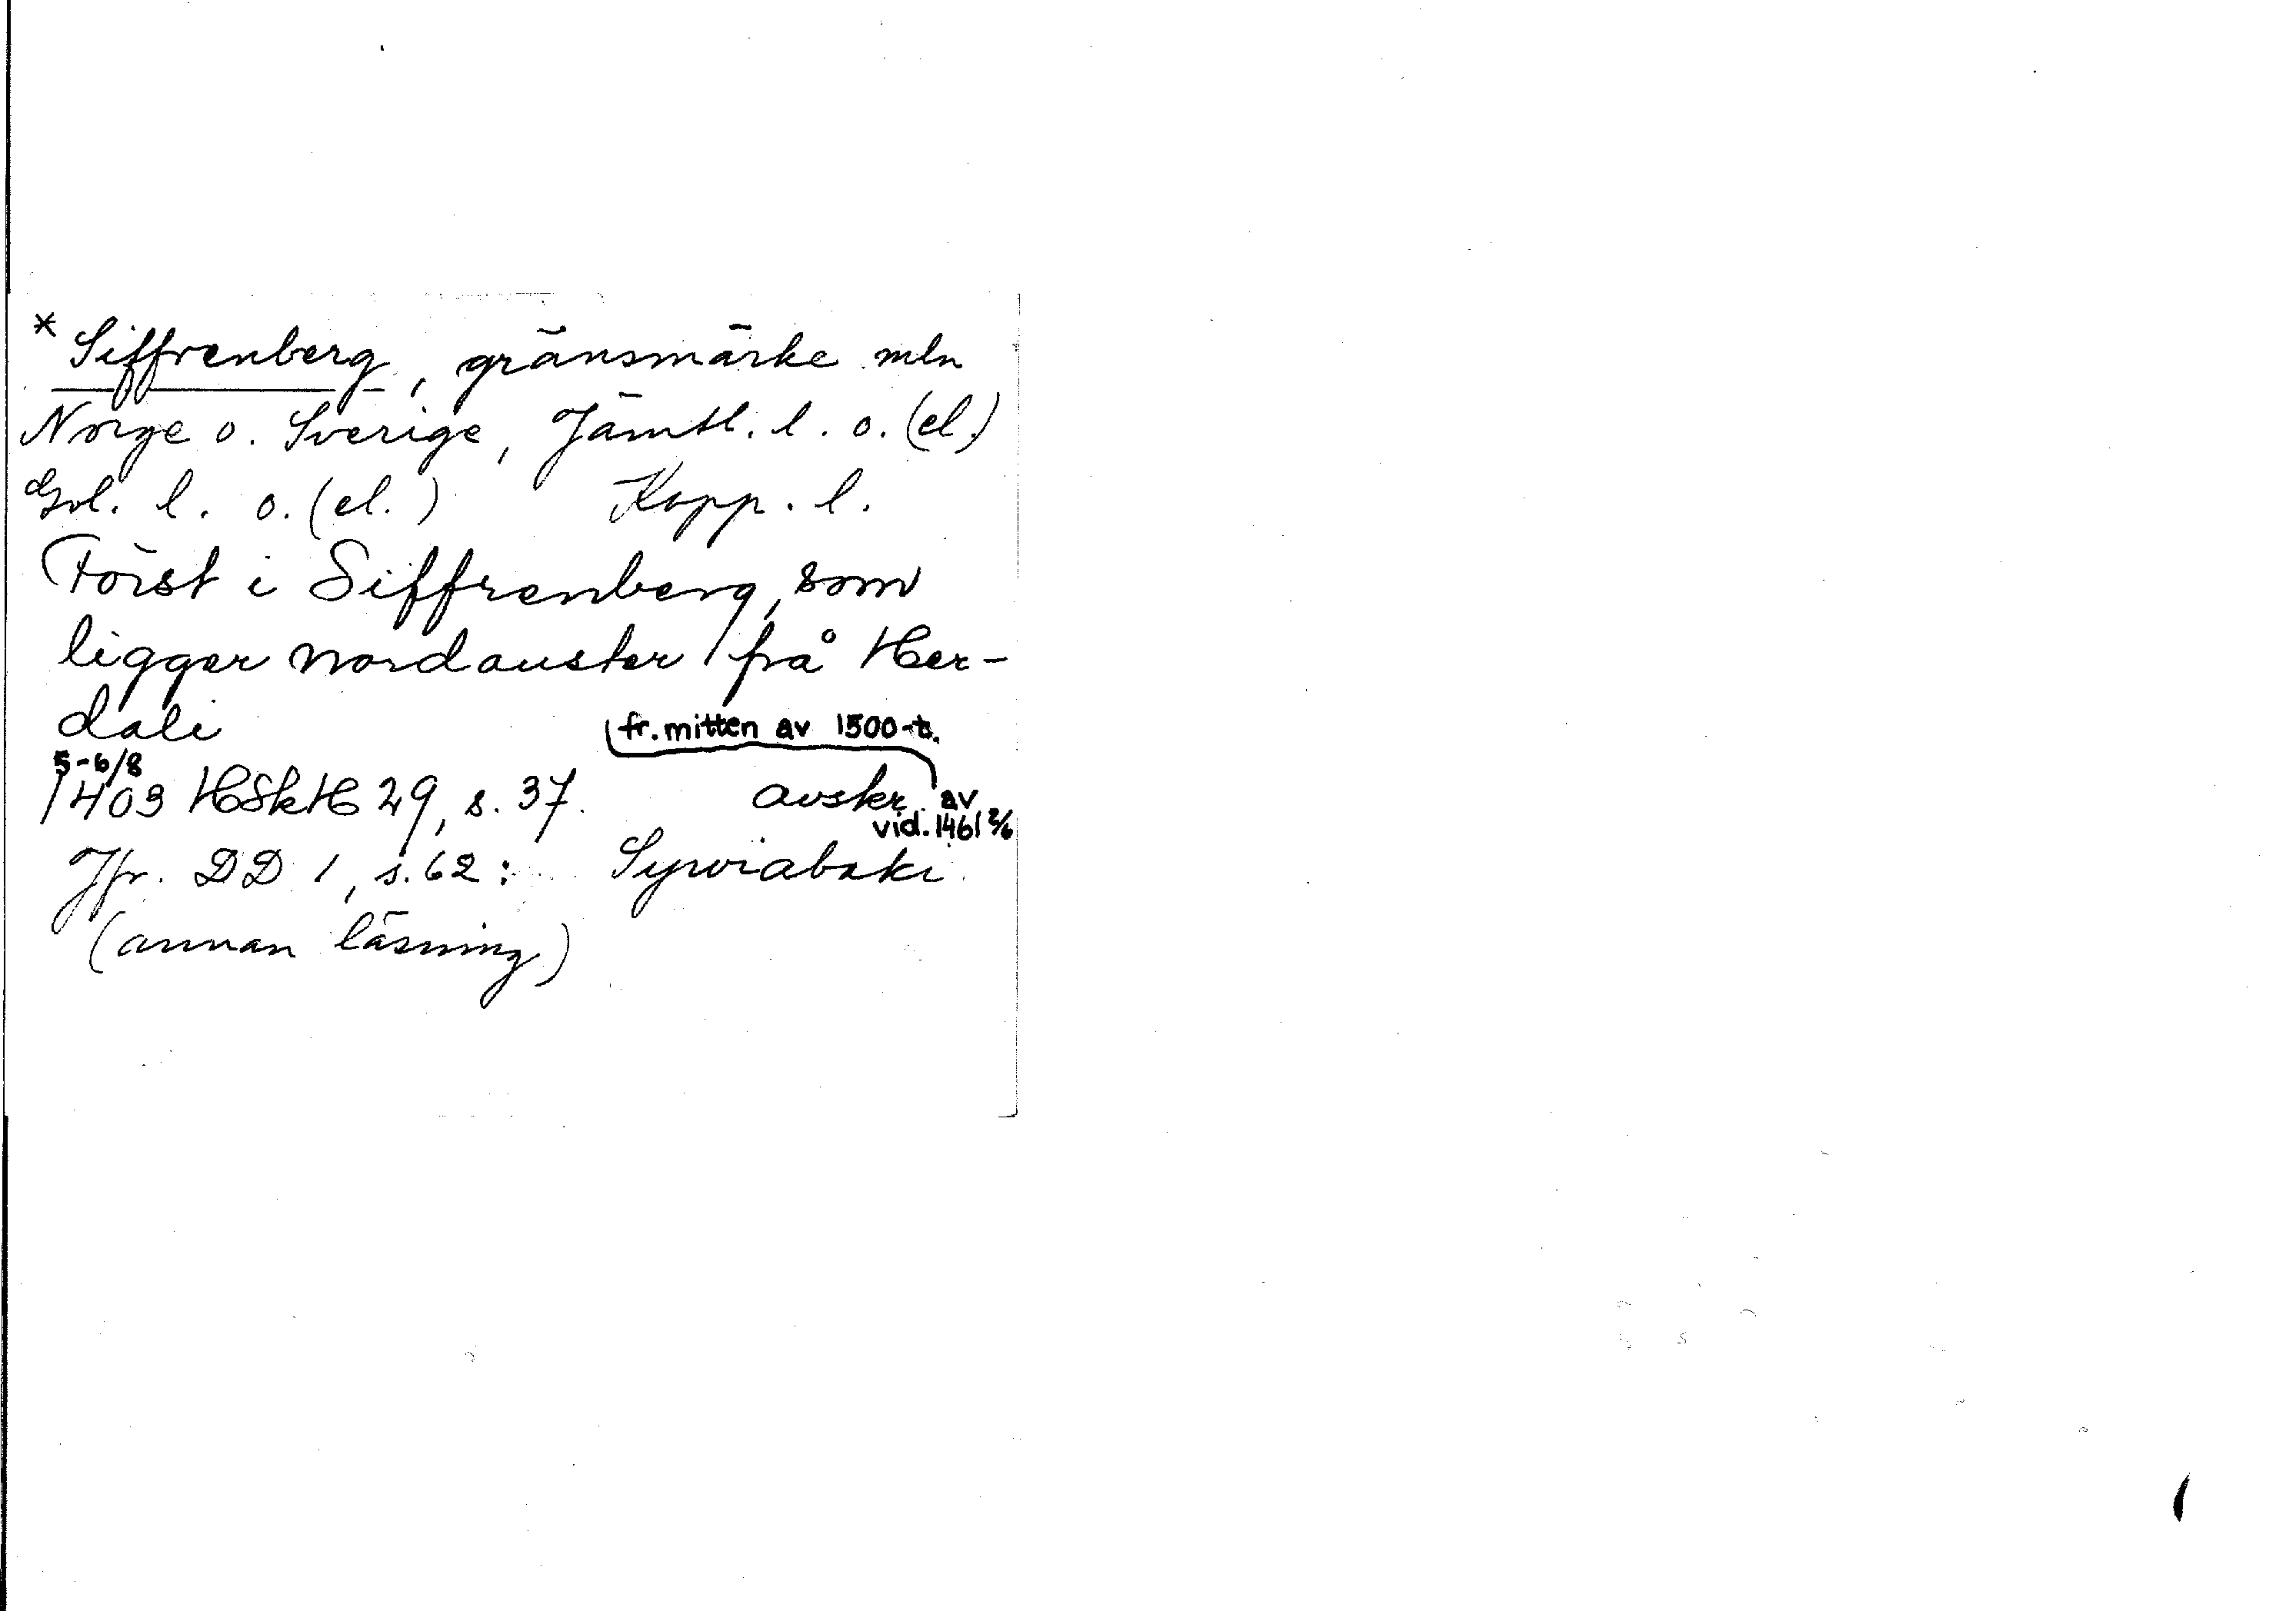 * Siffrenberg, gränsmärke mln
Norge o. Sverige, Jämtl. l. o. (el.)
Gvl. l. o. (el.) Kopp. l.
Först i Siffrenberg, som
ligger nordauster frå Her-
dali
fr. mitten av 1500-t.
5-6/8
1403 HSkH 29, s. 37. avskr. av
vid. 1461 2/6
Jfr. DD 1, s. 62: Syvriabaki
(annan läsning)